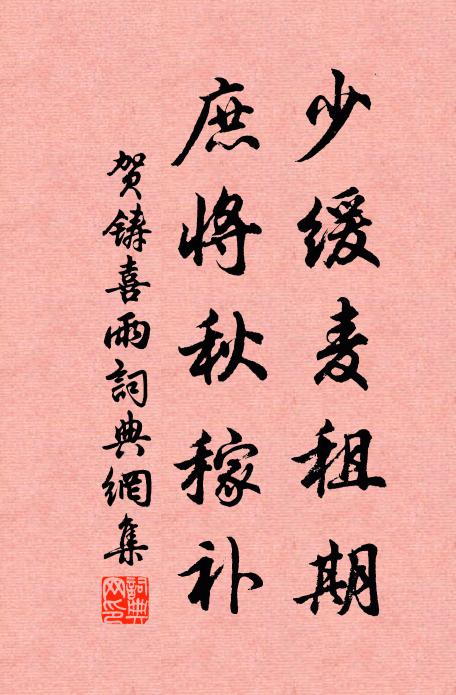 少缓麦租期
庶将秋稼补
贺铸喜雨詞典網集
詞典网印